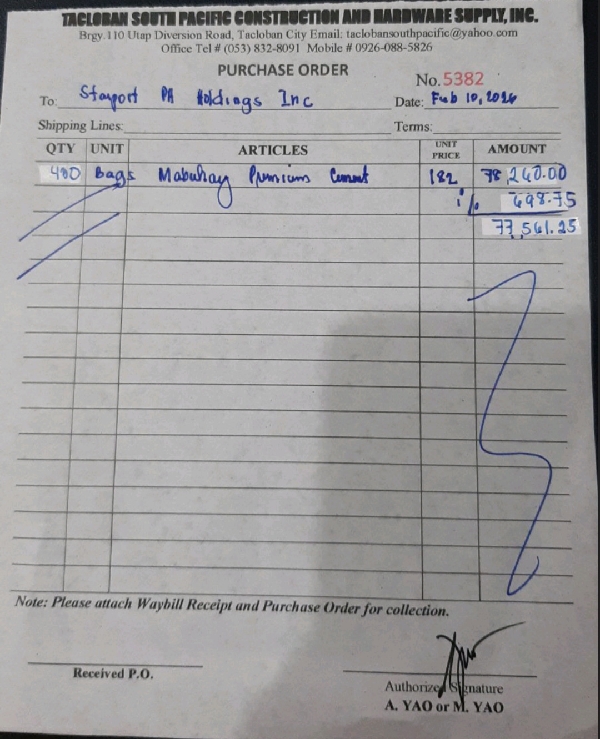 TACLOBAN SOUTH PACIFIC CONSTRUCTION AND HARDWARE SUPPLY, INC.
Brgy. 110 Utap Diversion Road, Tacloban City Email: taclobansouthpacific@yahoo.com
Office Tel # (053) 832-8091 Mobile # 0926-088-5826
PURCHASE ORDER
No. 5382
To: Stayport PA Holdings Inc Date: Feb 10, 2026
Shipping Lines: Terms:
QTY UNIT ARTICLES UNIT PRICE AMOUNT
Bags Mabuhay Premium Cement 182 78,260.00
1% 698.75
77,561.25
Note: Please attach Waybill Receipt and Purchase Order for collection.
Received P.O.
Authorized Signature
A. YAO or M. YAO